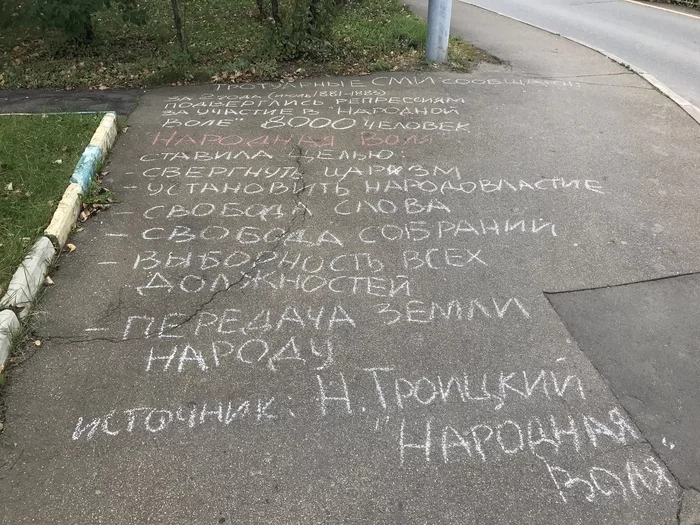 ТРОТУАРНЫЕ СМИ СООБЩАЮТ:
1881-1883)
ПОДВЕРГЛИСЬ РЕПРЕССИЯМ
ЗА УЧАСТИЕ В "НАРОДНОЙ
ВОЛЕ" 8000 ЧЕЛОВЕК
НАРОДНАЯ ВОЛЯ
СТАВИЛА ЦЕЛЬЮ:
- СВЕРГНУТЬ ЦАРИЗМ
- УСТАНОВИТЬ НАРОДОВЛАСТИЕ
- СВОБОДА СЛОВА
- СВОБОДА СОБРАНИЙ
- ВЫБОРНОСТЬ ВСЕХ
ДОЛЖНОСТЕЙ
- ПЕРЕДАЧА ЗЕМЛИ
НАРОДУ
ИСТОЧНИК: Н. ТРОИЦКИЙ
"НАРОДНАЯ
ВОЛЯ